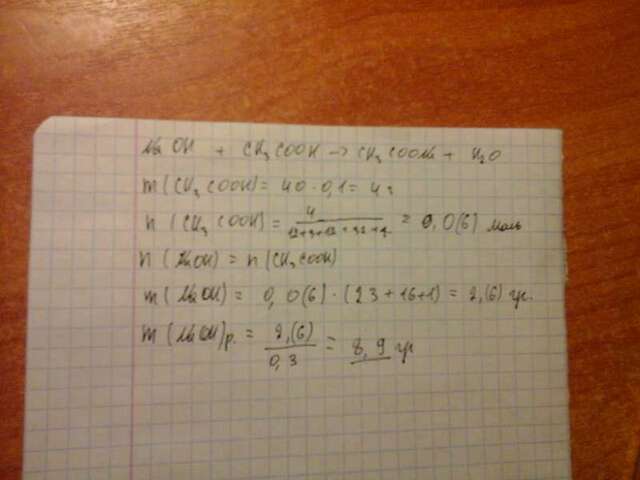 NaOH + CH3COOH → CH3COONa + H2O
m(CH3COOH) = 40 · 0,1 = 4 г
n(CH3COOH) = 4 / 12+3+12+32+1 = 0,0(6) моль
n(NaOH) = n(CH3COOH)
m(NaOH) = 0,0(6) · (23+16+1) = 2,(6) гр.
m(NaOH)р. = 2,(6) / 0,3 = 8,9 гр